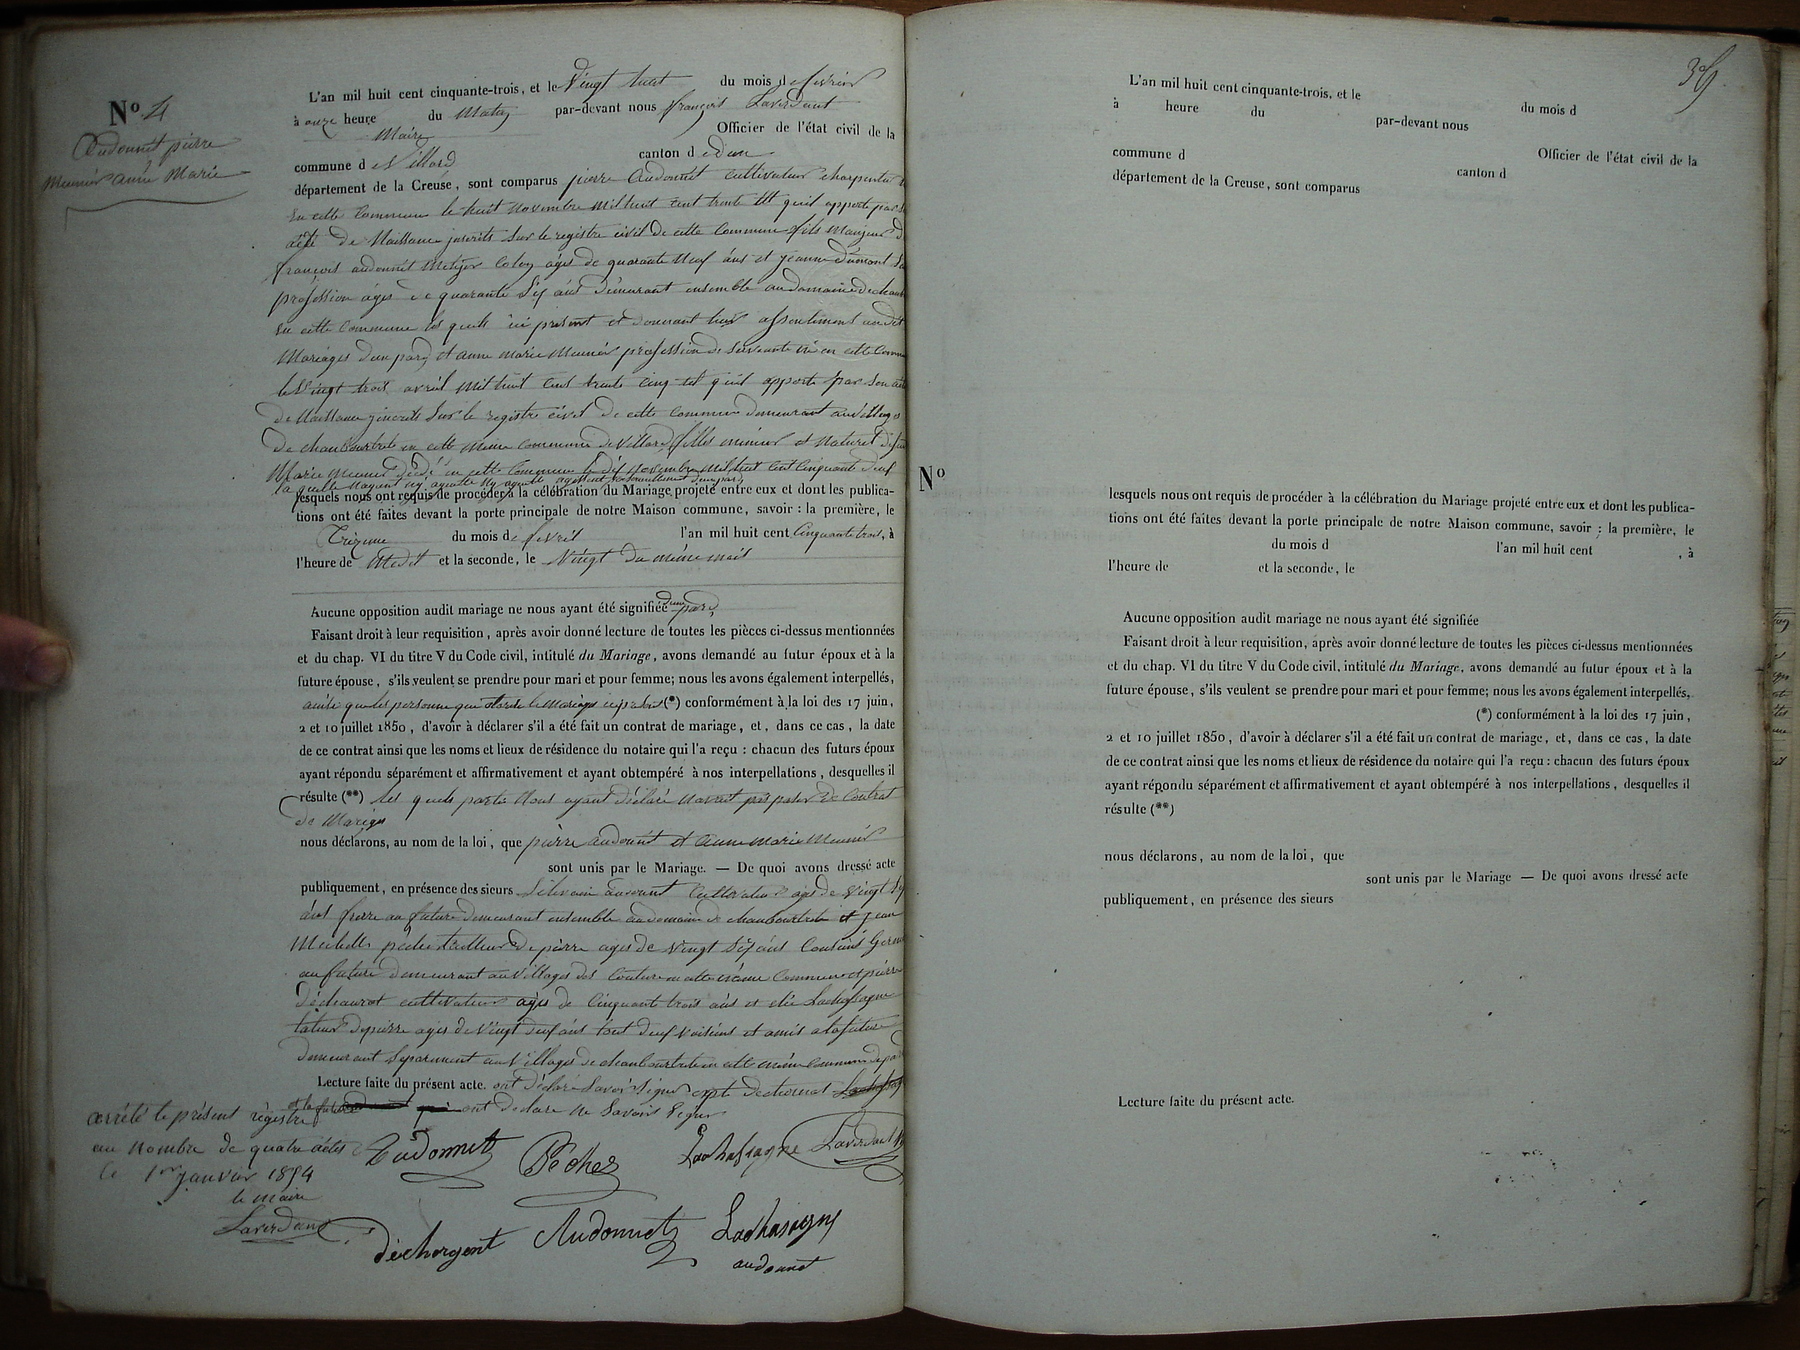 N.º 4
Audonnet pierre
Meunier anne Marie
L'an mil huit cent cinquante-trois, et le Vingt huit du mois de fevrier
à onze heure du Matin par-devant nous françois Laverdant
Maire Officier de l'état civil de la
commune de Villard canton de dun
département de la Creuse, sont comparus pierre Audonnet cultivateur charpentie
en cette Commune le huit novembre mil huit cent trente quil apporte par
acte de Naissance inscrits Sur le registre civil de cette Commune fils majeur d
françois audonnet Metojer Colon agés de quarante neuf ans et jeanne
profession agés de quarante Six ans démeurant ensemble audomaine de
en cette Commune les quels ici présent et donnant leur assentiment audit
Mariages d'un part et anne marie Meunier profession de Servante né en cette Comm
le Vingt trois avril mil huit cent trente cinq tel quil apporte par Son acte
de Naissance jnscrits Sur le registre civil de cette Commune demeurant au Villages
de en cette meme commune de Villard filles mineur et Naturel
Marie Meunier en cette Commune le dix novembre mil huit cent cinquante deux
lesquels nous ont requis de procéder à la célébration du Mariage projeté entre eux et dont les publica-
tions ont été faites devant la porte principale de notre Maison commune, savoir : la première, le
Treizeme du mois de fevril l'an mil huit cent Cinquante trois, à
l'heure de Midit et la seconde, le Vingt du même mois
Aucune opposition audit mariage ne nous ayant été signifiée d'une part,
Faisant droit à leur requisition, après avoir donné lecture de toutes les pièces ci-dessus mentionnées
et du chap. VI du titre V du Code civil, intitulé du Mariage, avons demandé au futur époux et à la
future épouse, s'ils veulent se prendre pour mari et pour femme; nous les avons également interpellés,
ainsi que les personne qui le Mariage (*) conformément à la loi des 17 juin,
2 et 10 juillet 1850, d'avoir à déclarer s'il a été fait un contrat de mariage, et, dans ce cas, la date
de ce contrat ainsi que les noms et lieux de résidence du notaire qui l'a reçu : chacun des futurs époux
ayant répondu séparément et affirmativement et ayant obtempéré à nos interpellations, desquelles il
résulte (**) les quels partie Nous ayant déclaré navoit pas passer de Contrat
de Mariage
nous déclarons, au nom de la loi, que pierre audonnet et anne marie Meunier
sont unis par le Mariage. — De quoi avons dressé acte
publiquement, en présence des sieurs Silvain Cultivateur agés de Vingt
ans frerre au future demeurant ensemble audomaine de et jean
de pierre ages de Vingt Six ans Cousins Germ
au future demeurant au Villages des Couture en cette même Commune et pierre
cultivateur agés de Cinquante trois ans et Lachassagne
de pierre agés de Vingt deux ans tout deux Voisins et amis a la future
demeurant Séparément au Villages de en cette même Commune
Lecture faite du présent acte. ont déclaré Savoir Signer
et la future ont declare ne Savoir Signer
arrété le présent régistre
au Nombre de quatre actes
le 1er janvier 1854
le maire
Laverdant
Audonnet Péchez Lachassagne Laverdant
déchorgent Audonnet Lachasagne
audonnet
39
L'an mil huit cent cinquante-trois, et le du mois d
à heure du par-devant nous
Officier de l'état civil de la
commune d canton d
département de la Creuse, sont comparus
N.º
lesquels nous ont requis de procéder à la célébration du Mariage projeté entre eux et dont les publica-
tions ont été faites devant la porte principale de notre Maison commune, savoir : la première, le
du mois d l'an mil huit cent , à
l'heure de et la seconde, le
Aucune opposition audit mariage ne nous ayant été signifiée
Faisant droit à leur requisition, après avoir donné lecture de toutes les pièces ci-dessus mentionnées
et du chap. VI du titre V du Code civil, intitulé du Mariage, avons demandé au futur époux et à la
future épouse, s'ils veulent se prendre pour mari et pour femme; nous les avons également interpellés,
(*) conformément à la loi des 17 juin,
2 et 10 juillet 1850, d'avoir à déclarer s'il a été fait un contrat de mariage, et, dans ce cas, la date
de ce contrat ainsi que les noms et lieux de résidence du notaire qui l'a reçu : chacun des futurs époux
ayant répondu séparément et affirmativement et ayant obtempéré à nos interpellations, desquelles il
résulte (**)
nous déclarons, au nom de la loi, que
sont unis par le Mariage — De quoi avons dressé acte
publiquement, en présence des sieurs
Lecture faite du présent acte.